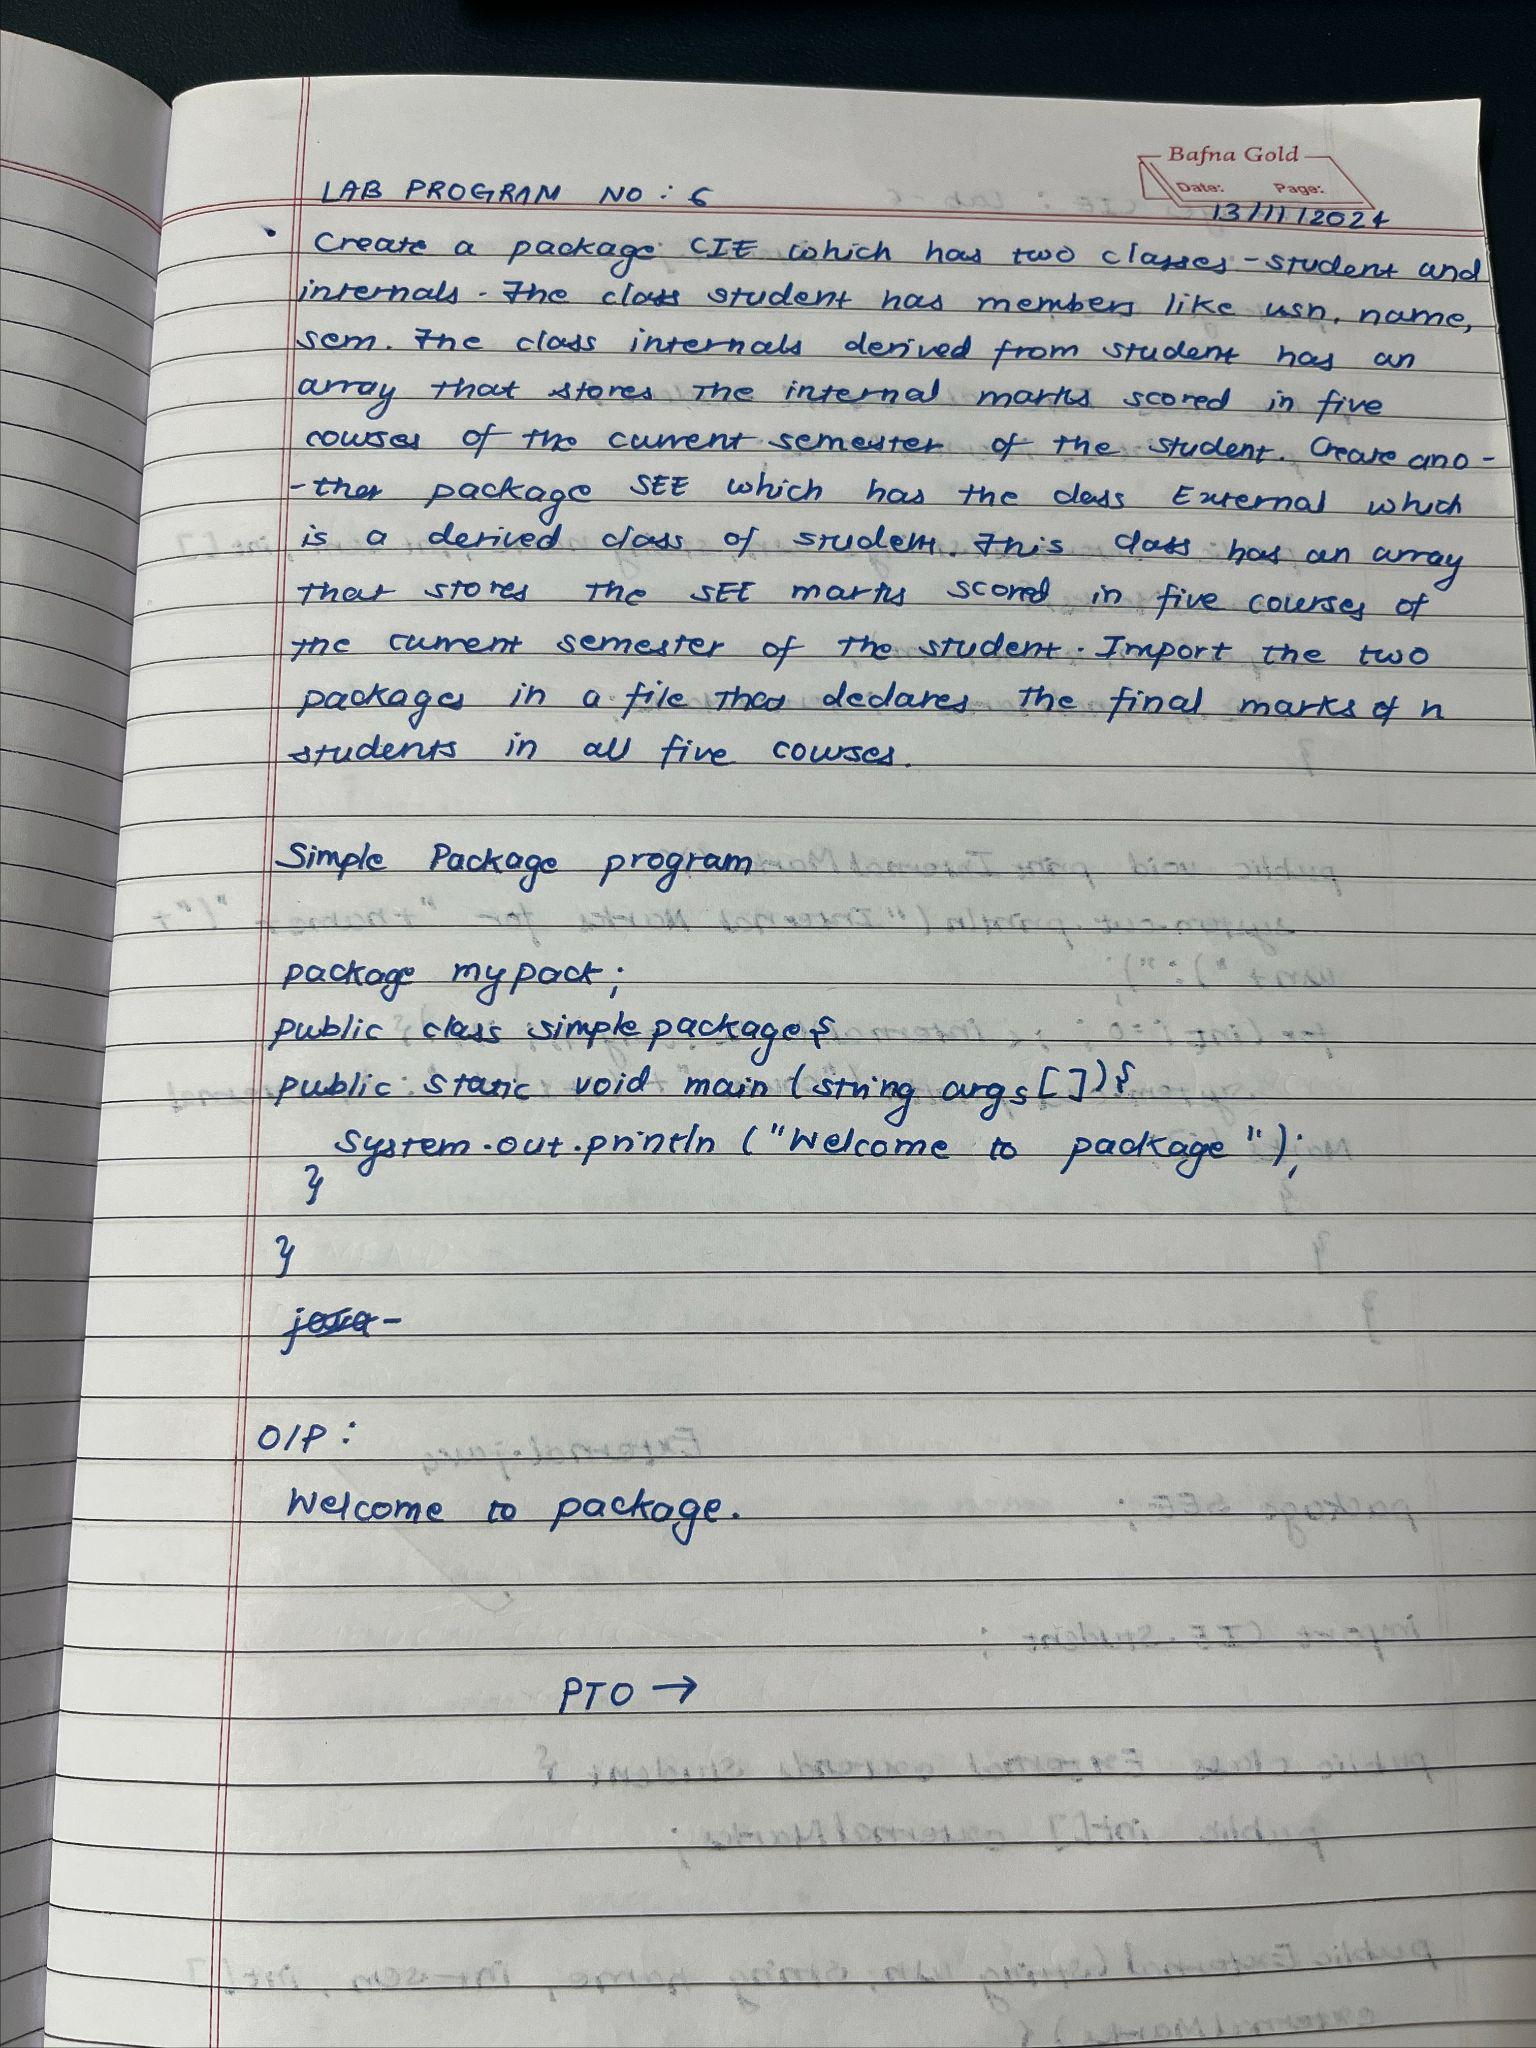 Bafna Gold
Date: Page:
LAB PROGRAM NO : 6
13/11/2024
• Create a package CIE which has two classes - student and
internals - The class student has members like usn, name,
sem. The class internals derived from student has an
array that stores the internal marks scored in five
courses of the current semester of the student. Create ano-
-ther package SEE which has the class External which
is a derived class of student. This class has an array
that stores the SEE marks scored in five courses of
the current semester of the student. Import the two
packages in a file that declares the final marks of n
students in all five courses.
Simple Package program
package mypack;
public class simplepackage{
public static void main (string args[]){
System.out.println ("Welcome to package");
}
}
O/P:
Welcome to package.
PTO →